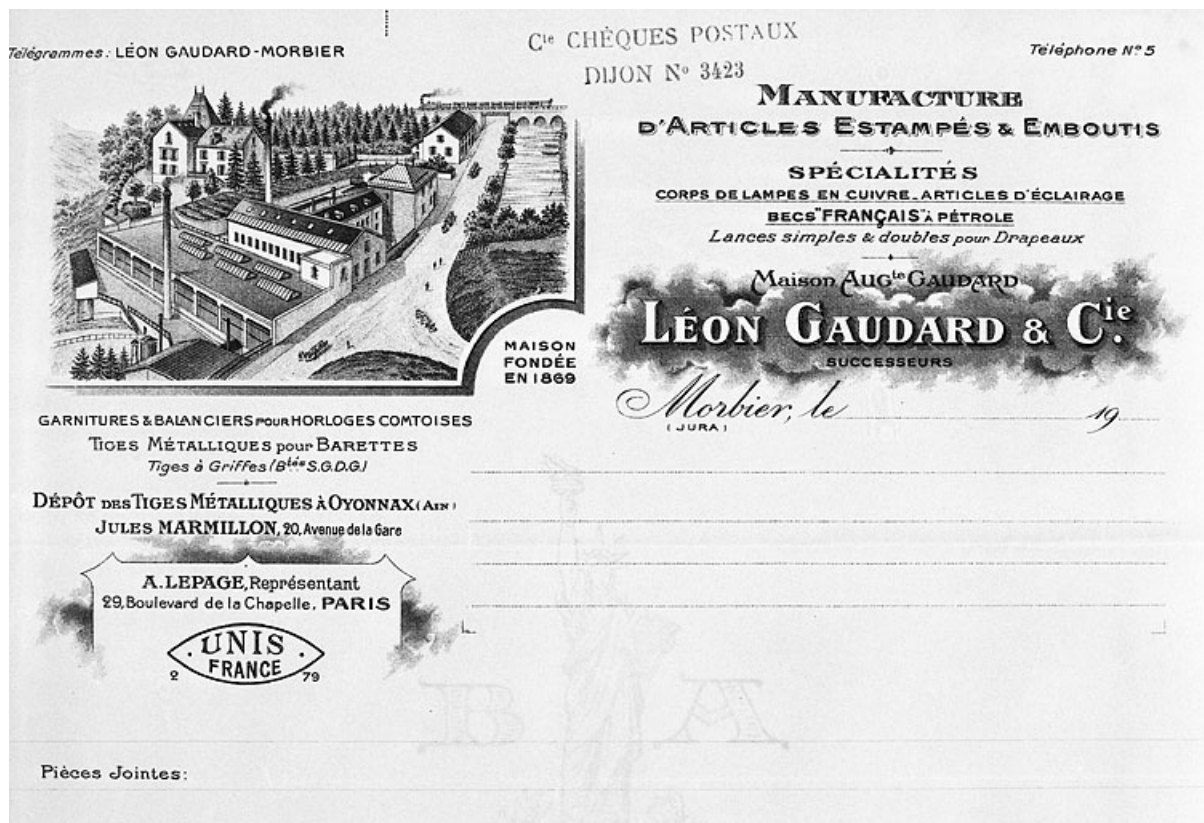 Télégrammes: LÉON GAUDARD-MORBIER
Cie CHÈQUES POSTAUX
DIJON No 3423
Téléphone No 5
MANUFACTURE
D'ARTICLES ESTAMPÉS & EMBOUTIS
SPÉCIALITÉS
CORPS DE LAMPES EN CUIVRE_ARTICLES D'ÉCLAIRAGE
BECS "FRANÇAIS" À PÉTROLE
Lances simples & doubles pour Drapeaux
Maison AUGte GAUDARD
LÉON GAUDARD & Cie.
SUCCESSEURS
MAISON
FONDÉE
EN 1869
Morbier, le 19
(JURA)
GARNITURES & BALANCIERS POUR HORLOGES COMTOISES
TIGES MÉTALLIQUES pour BARETTES
Tiges à Griffes (Btées S.G.D.G.)
DÉPÔT DES TIGES MÉTALLIQUES À OYONNAX (AIN)
JULES MARMILLON, 20, Avenue de la Gare
A. LEPAGE, Représentant
29, Boulevard de la Chapelle. PARIS
. UNIS .
FRANCE
2 79
Pièces Jointes: